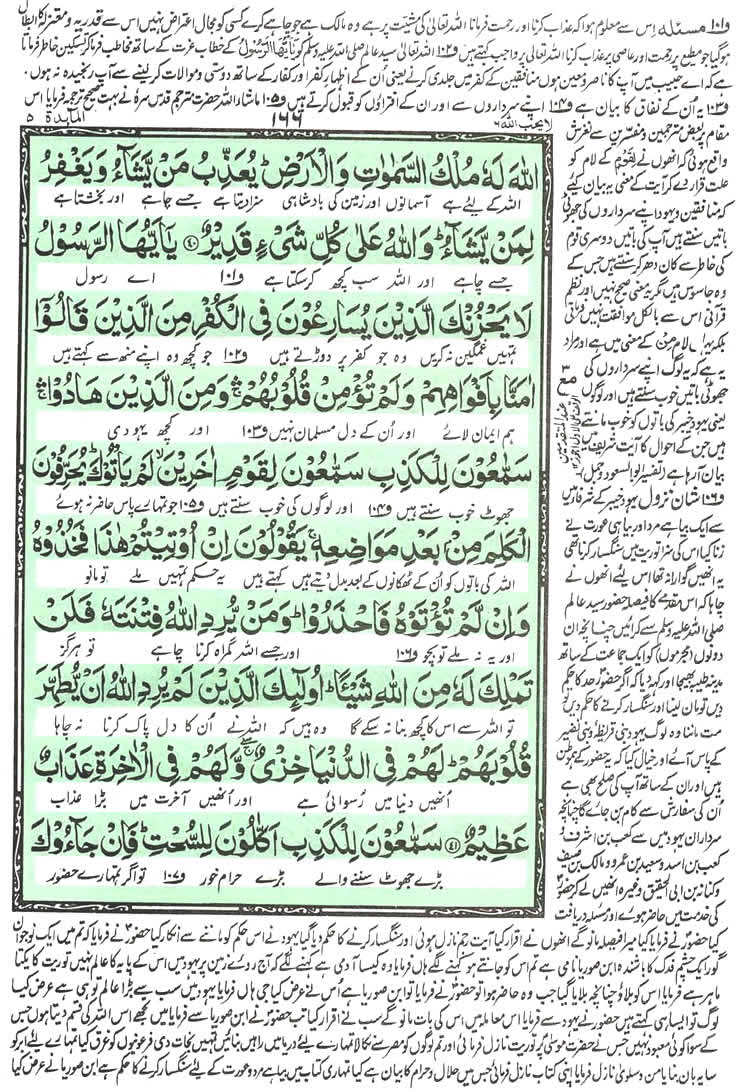 ف۱۰۱ مسئلہ اس سے معلوم ہوا کہ عذاب کرنا اور رحمت فرمانا اللہ تعالیٰ کی مشیّت پر ہے وہ مالک ہے جو چاہے کرے کسی کو مجال اعتراض نہیں اس سے قدریہ و معتزلہ کا ابطال
ہو گیا جو مطیع پر رحمت اور عاصی پر عذاب کرنا اللہ تعالیٰ پر واجب کہتے ہیں ف۱۰۲ اللہ تعالیٰ سید عالم صلی اللہ علیہ وسلم کو یٰٓاَیُّهَا الرَّسُوْلُ کے خطاب عزت کے ساتھ مخاطب فرما کر تسکین خاطر فرماتا
ہے کہ اے حبیب میں آپ کا ناصر و معین ہوں منافقین کے کفر میں جلدی کرنے یعنی اُن کے اظہار کفر اور کفار کے ساتھ دوستی و موالات کر لینے سے آپ رنجیدہ نہ ہوں.
ف۱۰۳ یہ اُن کے نفاق کا بیان ہے ف۱۰۴ اپنے سرداروں سے اور ان کے افتراؤں کو قبول کرتے ہیں ف۱۰۵ ماشاء اللہ حضرت مترجم قدس سرہ نے بہت صحیح ترجمہ فرمایا اس
لا یحب اللہ ۶
۱۶۶
المآىٕدة ۵
اللّٰهَ لَهٗ مُلْكُ السَّمٰوٰتِ وَ الْاَرْضِؕ یُعَذِّبُ مَنْ یَّشَآءُ وَ یَغْفِرُ
اللہ کے لیے ہے آسمانوں اور زمین کی بادشاہی سزا دیتا ہے جسے چاہے اور بخشتا ہے
لِمَنْ یَّشَآءُؕ وَ اللّٰهُ عَلٰى كُلِّ شَیْءٍ قَدِیْرٌ۝۴۰ یٰۤاَیُّهَا الرَّسُوْلُ
جسے چاہے اور اللہ سب کچھ کر سکتا ہے ف۱۰۱ اے رسول
لَا یَحْزُنْكَ الَّذِیْنَ یُسَارِعُوْنَ فِی الْكُفْرِ مِنَ الَّذِیْنَ قَالُوْۤا
تمہیں غمگین نہ کریں وہ جو کفر پر دوڑتے ہیں ف۱۰۲ جو کچھ وہ اپنے منہ سے کہتے ہیں
اٰمَنَّا بِاَفْوَاهِهِمْ وَ لَمْ تُؤْمِنْ قُلُوْبُهُمْۚۛ وَ مِنَ الَّذِیْنَ هَادُوْاۚۛ
ہم ایمان لائے اور اُن کے دل مسلمان نہیں ف۱۰۳ اور کچھ یہودی
سَمّٰعُوْنَ لِلْكَذِبِ سَمّٰعُوْنَ لِقَوْمٍ اٰخَرِیْنَۙ لَمْ یَاْتُوْكَؕ یُحَرِّفُوْنَ
جھوٹ خوب سنتے ہیں ف۱۰۴ اور لوگوں کی خوب سنتے ہیں ف۱۰۵ جو تمہارے پاس حاضر نہ ہوئے
الْكَلِمَ مِنْۢ بَعْدِ مَوَاضِعِهٖۚ یَقُوْلُوْنَ اِنْ اُوْتِیْتُمْ هٰذَا فَخُذُوْهُ
اللہ کی باتوں کو اُن کے ٹھکانوں کے بعد بدل دیتے ہیں کہتے ہیں یہ حکم تمہیں ملے تو مانو
وَ اِنْ لَّمْ تُؤْتَوْهُ فَاحْذَرُوْاؕ وَ مَنْ یُّرِدِ اللّٰهُ فِتْنَتَهٗ فَلَنْ
اور یہ نہ ملے تو بچو ف۱۰۶ اور جسے اللہ گمراہ کرنا چاہے تو ہرگز
تَمْلِكَ لَهٗ مِنَ اللّٰهِ شَیْــٴًـاؕ اُولٰٓىٕكَ الَّذِیْنَ لَمْ یُرِدِ اللّٰهُ اَنْ یُّطَهِّرَ
تو اللہ سے اس کا کچھ بنا نہ سکے گا وہ ہیں کہ اللہ نے اُن کا دل پاک کرنا نہ چاہا
قُلُوْبَهُمْؕ لَهُمْ فِی الدُّنْیَا خِزْیٌ ۚۖ وَّ لَهُمْ فِی الْاٰخِرَةِ عَذَابٌ
اُنھیں دنیا میں رسوائی ہے اور اُنھیں آخرت میں بڑا عذاب
عَظِیْمٌ۝۴۱ سَمّٰعُوْنَ لِلْكَذِبِ اَكّٰلُوْنَ لِلسُّحْتِؕ فَاِنْ جَآءُوْكَ
بڑے جھوٹ سننے والے بڑے حرام خور ف۱۰۷ تو اگر تمہارے حضور
مقام پر بعض مترجمین و مفسرین سے لغزش
واقع ہوئی کہ انھوں نے لِقَوْمٍ کے لام کو
علت قرار دے کر آیت کے معنی یہ بیان کیے
کہ منافقین و یہود اپنے سرداروں کی جھوٹی
باتیں سنتے ہیں آپ کی باتیں دوسری قوم
کی خاطر سے کان دھر کر سنتے ہیں جس کے
وہ جاسوس ہیں مگر یہ معنی صحیح نہیں اور نظم
قرآنی اس سے بالکل موافقت نہیں فرماتی
بلکہ یہاں لام مِن کے معنی میں ہے اور مراد
یہ ہے کہ یہ لوگ اپنے سرداروں کی
جھوٹی باتیں خوب سنتے ہیں اور لوگوں
یعنی یہود خیبر کی باتوں کو خوب مانتے
ہیں جن کے احوال کا آیت شریف میں
بیان آ رہا ہے (تفسیر ابوالسعود و جمل)
ف۱۰۶ شان نزول یہود خیبر کے شرفا میں
سے ایک بیاہے مرد اور بیاہی عورت نے
زنا کیا اس کی سزا توریت میں سنگسار کرنا تھی
یہ انھیں گوارا نہ تھا اس لیے انھوں نے
چاہا کہ اس مقدمے کا فیصلہ حضور سید عالم
صلی اللہ علیہ وسلم سے کرائیں چنانچہ ان
دونوں (مجرموں) کو ایک جماعت کے ساتھ
مدینہ طیبہ بھیجا اور کہہ دیا کہ اگر حضور حد کا حکم
دیں تو مان لینا اور سنگسار کرنے کا حکم دیں
مت ماننا وہ لوگ یہود بنی قریظہ و بنی نضیر
کے پاس آئے اور خیال کیا کہ یہ حضور کے ہم وطن
ہیں اور ان کے ساتھ آپ کی صلح بھی ہے
اُن کی سفارش سے کام بن جائے گا چنانچہ
سرداران یہود میں سے کعب بن اشرف و
کعب بن اسد و سعید بن عمرو و مالک بن صیف
و کنانہ بن ابی الحقیق وغیرہ انھیں لے کر حضور
کی خدمت میں حاضر ہوئے اور مسئلہ دریافت
کیا حضور نے فرمایا کیا میرا فیصلہ مانو گے انھوں نے اقرار کیا آیت رجم نازل ہوئی اور سنگسار کرنے کا حکم دیا گیا یہود نے اس حکم کو ماننے سے انکار کیا حضور نے فرمایا کہ تم میں ایک نوجوان
گورا یک چشم فدک کا باشندہ ابن صوریا نامی ہے تم اس کو جانتے ہو کہنے لگے ہاں فرمایا وہ کیسا آدمی ہے کہنے لگے کہ آج روئے زمین پر یہود میں اس کے پایہ کا عالم نہیں توریت کا یکتا
ماہر ہے فرمایا اس کو بلاؤ چنانچہ بلایا گیا جب وہ حاضر ہوا تو حضور نے فرمایا تو ابن صوریا ہے اُس نے عرض کیا جی ہاں فرمایا یہود میں سب سے بڑا عالم تو ہی ہے عرض کیا
لوگ تو ایسا ہی کہتے ہیں حضور نے یہود سے فرمایا اس معاملہ میں اس کی بات مانو گے سب نے اقرار کیا تب حضور نے ابن صوریا سے فرمایا میں تجھے اس اللہ کی قسم دیتا ہوں جس
کے سوا کوئی معبود نہیں جس نے حضرت موسیٰ پر توریت نازل فرمائی اور تم لوگوں کو مصر سے نکالا تمہارے لیے دریا میں راہیں بنائیں تمہیں نجات دی فرعونیوں کو غرق کیا تمہارے لیے ابر کو
سایہ بان بنایا من و سلویٰ نازل فرمایا اپنی کتاب نازل فرمائی جس میں حلال و حرام کا بیان ہے کیا تمہاری کتاب میں بیاہے مرد و عورت کے لیے سنگسار کرنے کا حکم ہے ابن صوریا نے عرض کیا